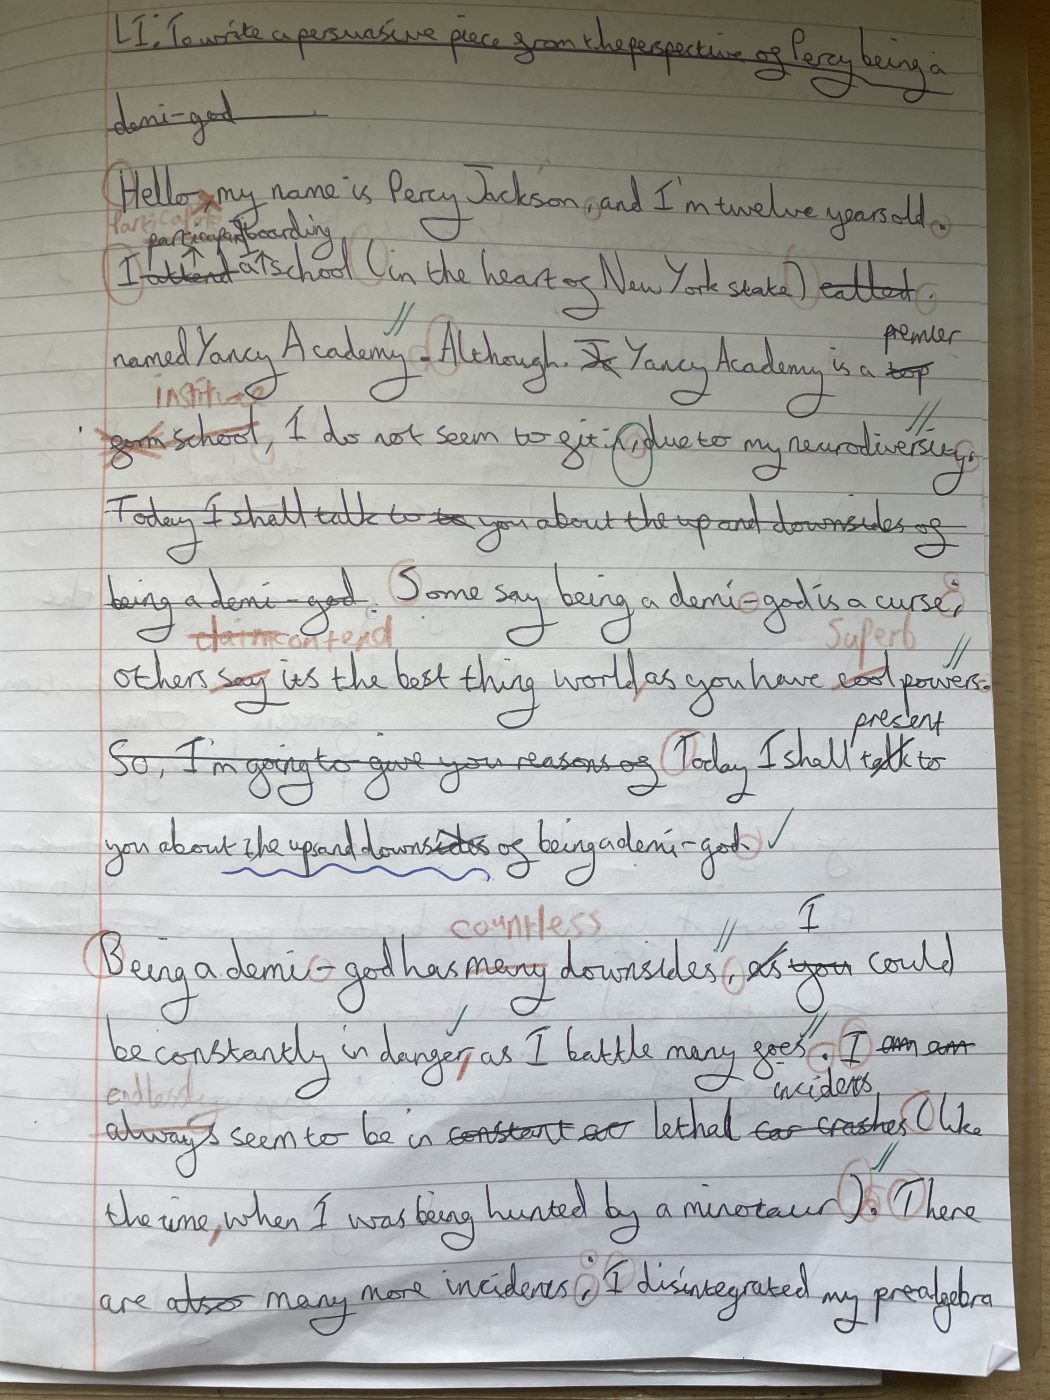 LI: To write a persuasive piece from the perspective of Percy being a
demi-god
Hello my name is Percy Jackson, and I'm twelve years old.
participant boarding
I attend at school (in the heart of New York state) called.
premier
named Yancy Academy. Although. I Yancy Academy is a top
institute
school, I do not seem to fit in, due to my neurodiversity.
Today I shall talk to to you about the up and downsides of
being a demi-god. Some say being a demi-god is a curse;
claim contend superb
others say its the best thing world, as you have cool powers.
present
So, I'm going to give you reasons of Today I shall talk to
you about the ups and downsides of being a demi-god.
countless I
Being a demi-god has many downsides, as you could
be constantly in danger, as I battle many foes. I am am
endlessly incidents
always seem to be in constant lethal car crashes (like
the time, when I was being hunted by a minotaur). There
are also many more incidents; I disintegrated my prealgebra